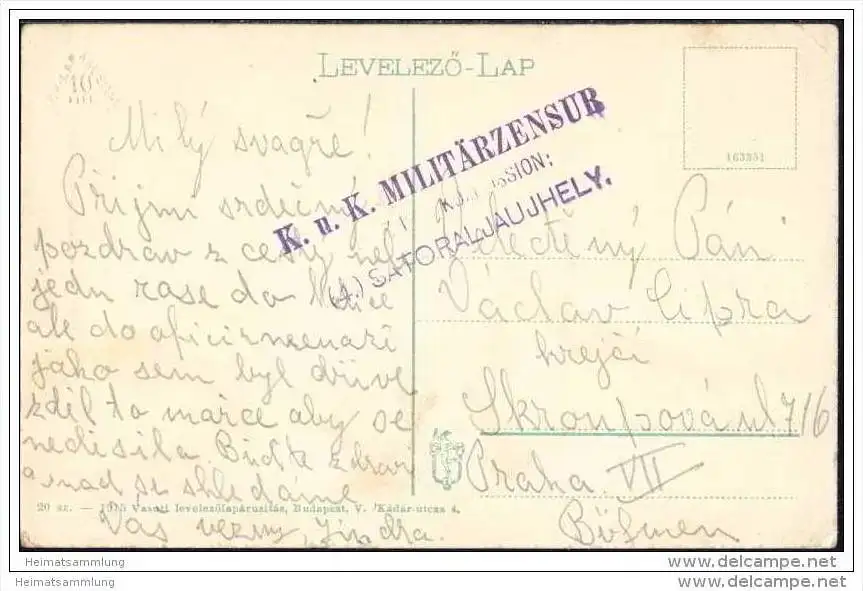 LEVELEZŐ-LAP
163351
K. u. K. MILITÄRZENSUR
(4.) SATORALJAUJHELY.
Milý svagře!
Přijmi srdečný
pozdrav z cesty nel
jedu zase do
ale do oficirmenaži
jako sem byl dříve
zděl to mařce aby se
nedisila. Buďte zdraví
a snad se shledáme
Vas verny Jindra.
Velectěný Pán
Václav Cipra
krejčí
Skroupová ul 716
Praha VII
Böhmen
20 sz. — 1915 Vasuti levelezőlapárusítás, Budapest, V. Kádár-utcza 4.
Heimatsammlung
Heimatsammlung
www.delcampe.net